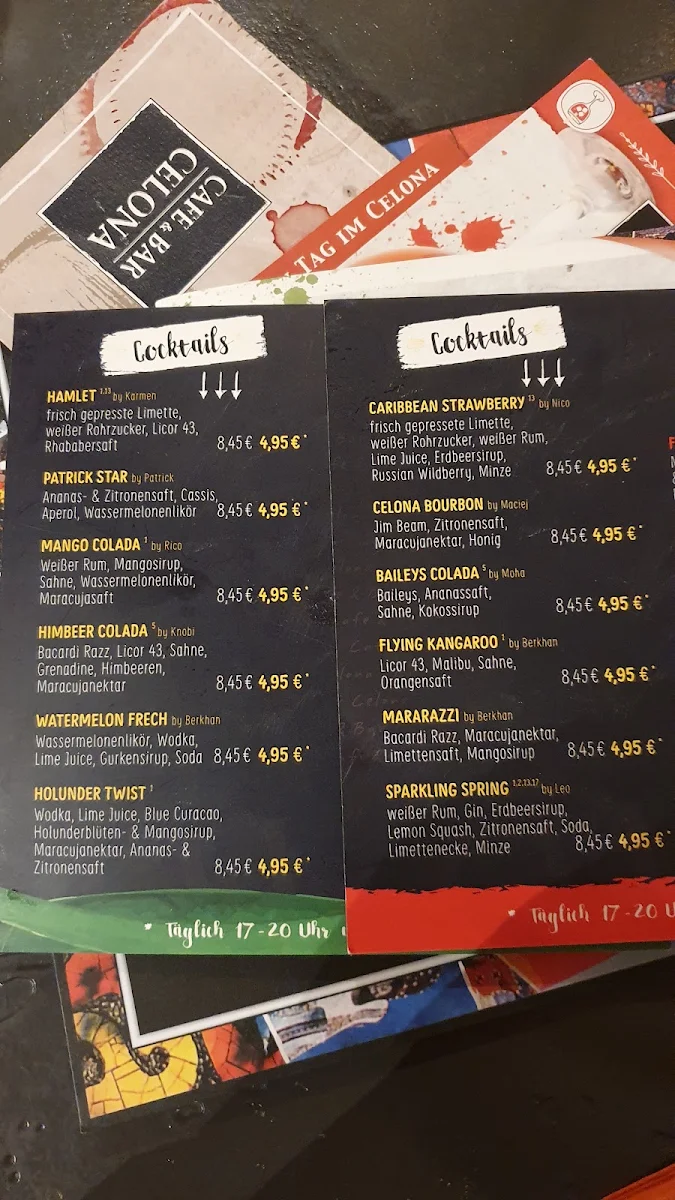 CAFE & BAR
CELONA
TAG IM CELONA
Cocktails
HAMLET 7,13 by Karmen
frisch gepresste Limette,
weißer Rohrzucker, Licor 43,
Rhabarbersaft 8,45 € 4,95 €*
PATRICK STAR by Patrick
Ananas- & Zitronensaft, Cassis,
Aperol, Wassermelonenlikör 8,45 € 4,95 €*
MANGO COLADA 1 by Rico
Weißer Rum, Mangosirup,
Sahne, Wassermelonenlikör,
Maracujasaft 8,45 € 4,95 €*
HIMBEER COLADA 5 by Knobi
Bacardi Razz, Licor 43, Sahne,
Grenadine, Himbeeren,
Maracujanektar 8,45 € 4,95 €*
WATERMELON FRECH by Berkhan
Wassermelonenlikör, Wodka,
Lime Juice, Gurkensirup, Soda 8,45 € 4,95 €*
HOLUNDER TWIST 1
Wodka, Lime Juice, Blue Curacao,
Holunderblüten- & Mangosirup,
Maracujanektar, Ananas- &
Zitronensaft 8,45 € 4,95 €*
* Täglich 17-20 Uhr
Cocktails
CARIBBEAN STRAWBERRY 13 by Nico
frisch gepressete Limette,
weißer Rohrzucker, weißer Rum,
Lime Juice, Erdbeersirup,
Russian Wildberry, Minze 8,45 € 4,95 €*
CELONA BOURBON by Maciej
Jim Beam, Zitronensaft,
Maracujanektar, Honig 8,45 € 4,95 €*
BAILEYS COLADA 5 by Moha
Baileys, Ananassaft,
Sahne, Kokossirup 8,45 € 4,95 €*
FLYING KANGAROO 1 by Berkhan
Licor 43, Malibu, Sahne,
Orangensaft 8,45 € 4,95 €*
MARARAZZI by Berkhan
Bacardi Razz, Maracujanektar,
Limettensaft, Mangosirup 8,45 € 4,95 €*
SPARKLING SPRING 1,2,13,17 by Leo
weißer Rum, Gin, Erdbeersirup,
Lemon Squash, Zitronensaft, Soda,
Limettenecke, Minze 8,45 € 4,95 €*
* Täglich 17-20 U